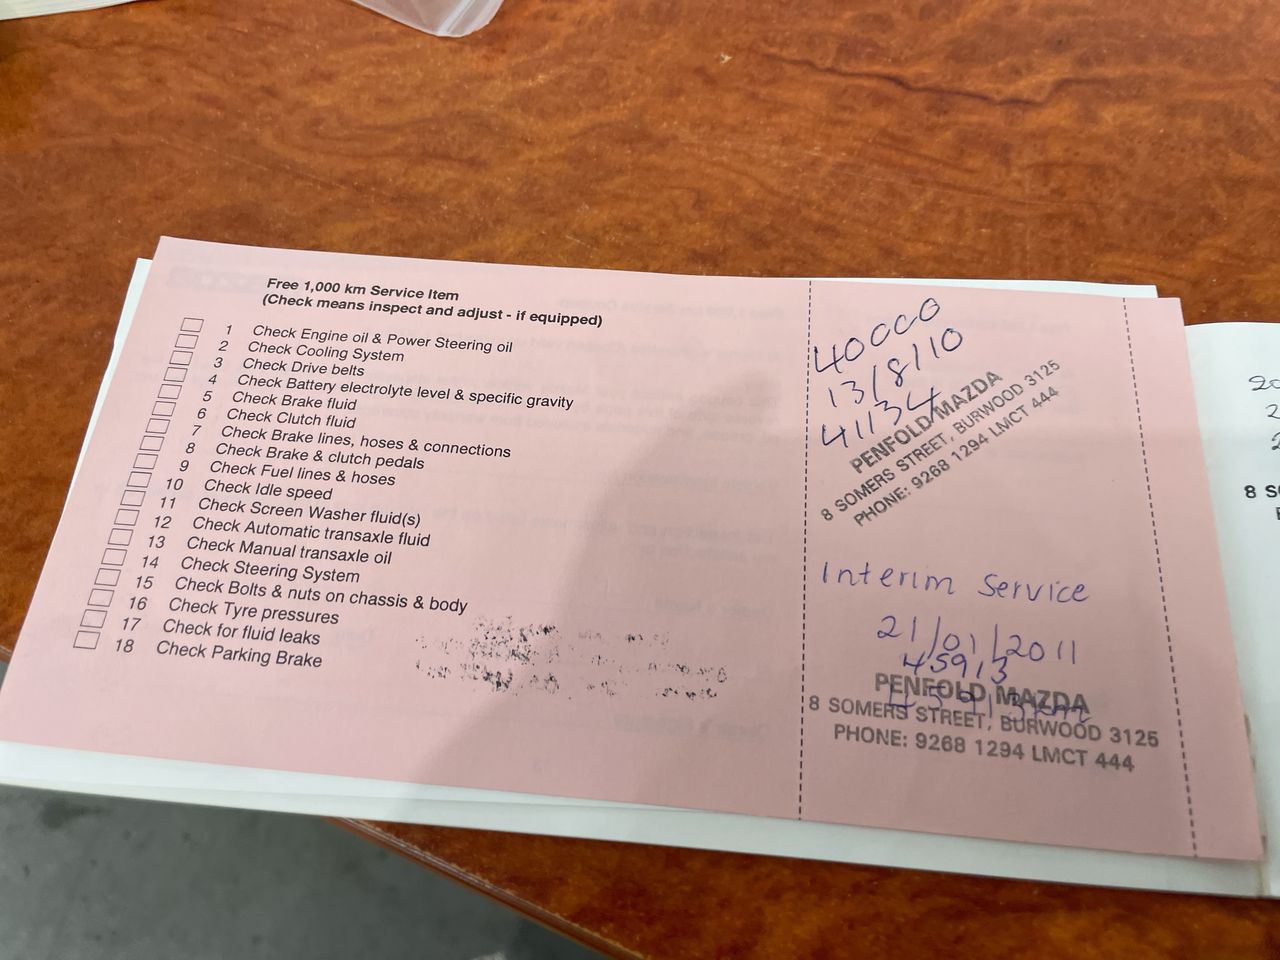 Free 1,000 km Service Item
(Check means inspect and adjust - if equipped)
1 Check Engine oil & Power Steering oil
2 Check Cooling System
3 Check Drive belts
4 Check Battery electrolyte level & specific gravity
5 Check Brake fluid
6 Check Clutch fluid
7 Check Brake lines, hoses & connections
8 Check Brake & clutch pedals
9 Check Fuel lines & hoses
10 Check Idle speed
11 Check Screen Washer fluid(s)
12 Check Automatic transaxle fluid
13 Check Manual transaxle oil
14 Check Steering System
15 Check Bolts & nuts on chassis & body
16 Check Tyre pressures
17 Check for fluid leaks
18 Check Parking Brake
40000
13/8/10
41134
PENFOLD MAZDA
8 SOMERS STREET, BURWOOD 3125
PHONE: 9268 1294 LMCT 444
Interim Service
21/01/2011
45913
PENFOLD MAZDA
45913km
8 SOMERS STREET, BURWOOD 3125
PHONE: 9268 1294 LMCT 444
20
2
2
8 S